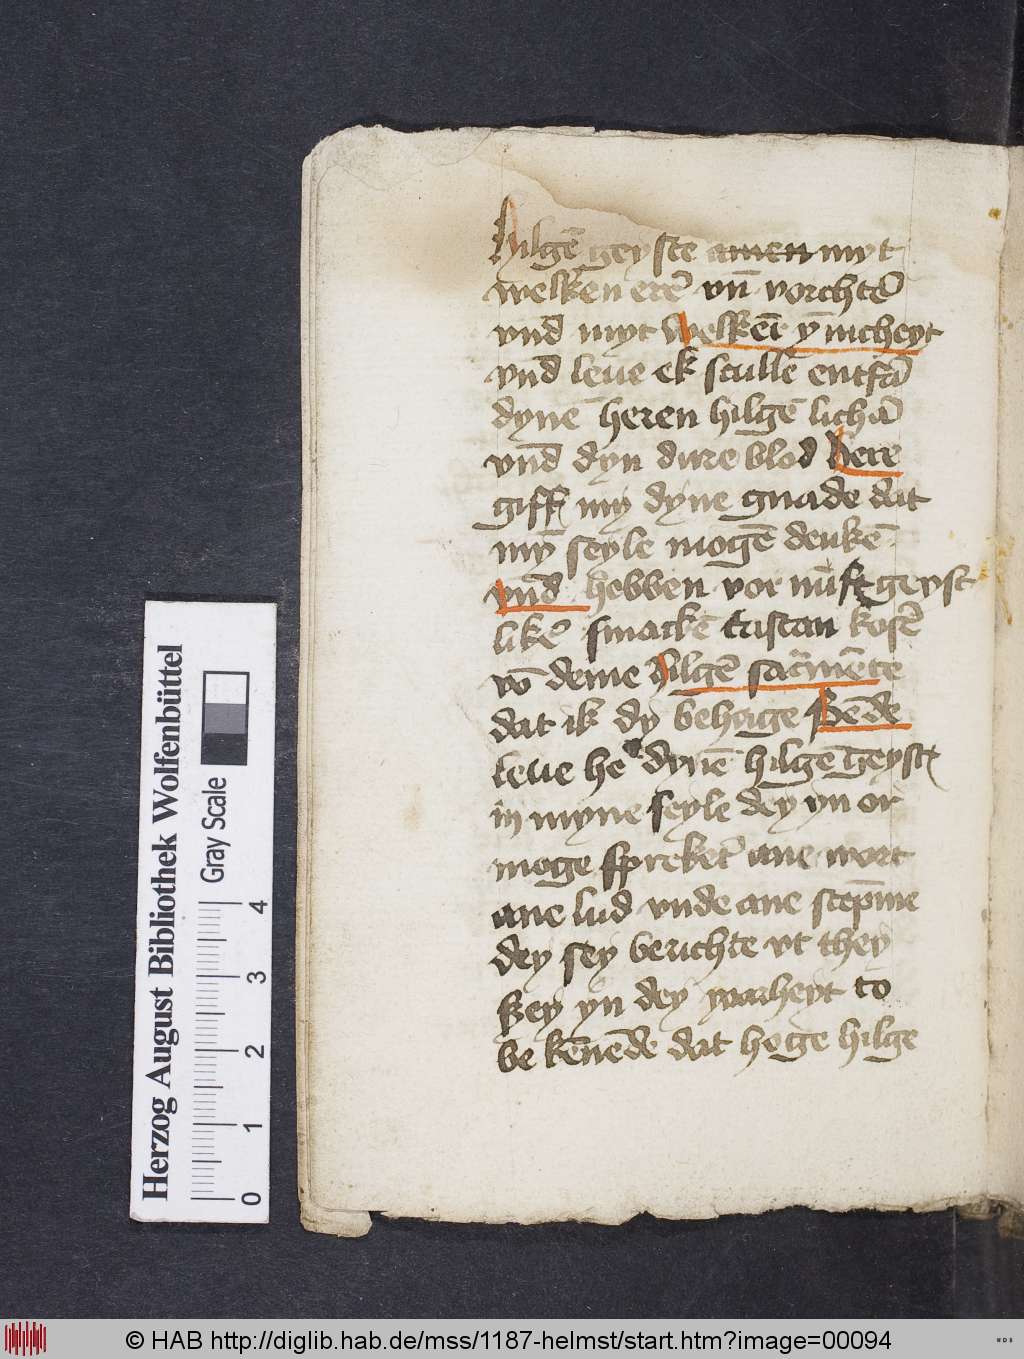 hilgē geyste amen myt
welken erē vn̄ vorchtē
vnd myt welkēr ȳnicheyt
vnd leue ek scullē entfā
dynē heren hilgē lichā
vnd dyn dure blod here
giff my dyne gnade dat
mȳ seyle mogē denkē
vnd hebben vor nuft geyst
likē smackē tastan kosē
vō deme hilgē sacmēte
dat ik dy behage Sēde
leue he dynē hilgē geyst
in myne seyle dey yn or
moge sprekēt ane wort
ane lud vnde ane stēpme
dey sey berichte vt they
key yn dey yoarheyt to
be kēnēde dat hoge hilge
Herzog August Bibliothek Wolfenbüttel
Gray Scale
0 1 2 3 4
© HAB http://diglib.hab.de/mss/1187-helmst/start.htm?image=00094
WDB